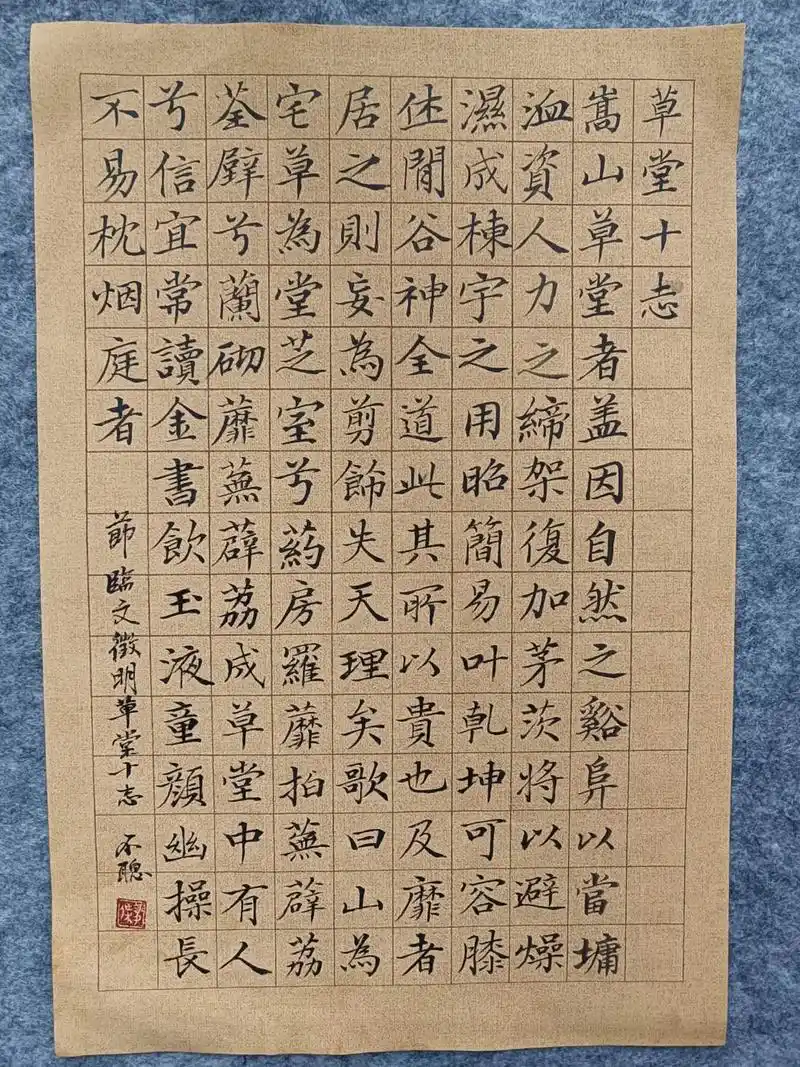 草堂十志
嵩山草堂者盖因自然之谿阜以當墉
洫資人力之締架復加茅茨將以避燥
濕成棟宇之用昭簡易叶乹坤可容膝
休閒谷神全道此其所以貴也及靡者
居之則妄為剪飾失天理矣歌曰山為
宅草為堂芝室兮葯房羅蘼拍蕪薜荔
荃壁兮蘭砌蘼蕪薜荔成草堂中有人
兮信宜常讀金書飲玉液童顏幽操長
不易枕烟庭者
節臨文徵明草堂十志
不聰